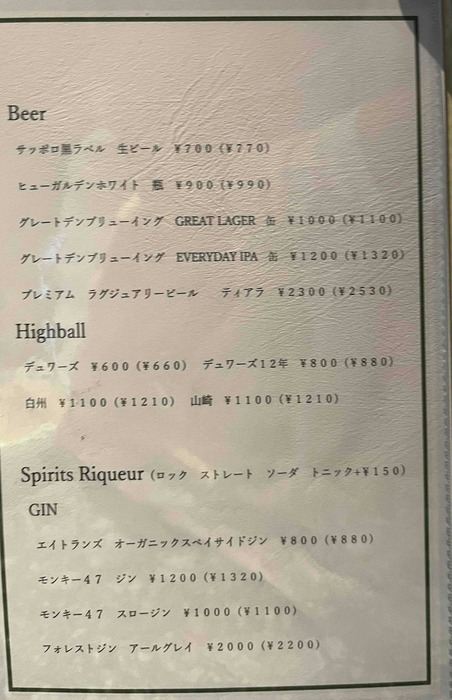 Beer
サッポロ黒ラベル 生ビール ¥700(¥770)
ヒューガルデンホワイト 瓶 ¥900(¥990)
グレートデンブリューイング GREAT LAGER 缶 ¥1000(¥1100)
グレートデンブリューイング EVERYDAY IPA 缶 ¥1200(¥1320)
プレミアム ラグジュアリービール ティアラ ¥2300(¥2530)
Highball
デュワーズ ¥600(¥660) デュワーズ12年 ¥800(¥880)
白州 ¥1100(¥1210) 山崎 ¥1100(¥1210)
Spirits Riqueur (ロック ストレート ソーダ トニック+¥150)
GIN
エイトランズ オーガニックスペイサイドジン ¥800(¥880)
モンキー47 ジン ¥1200(¥1320)
モンキー47 スロージン ¥1000(¥1100)
フォレストジン アールグレイ ¥2000(¥2200)